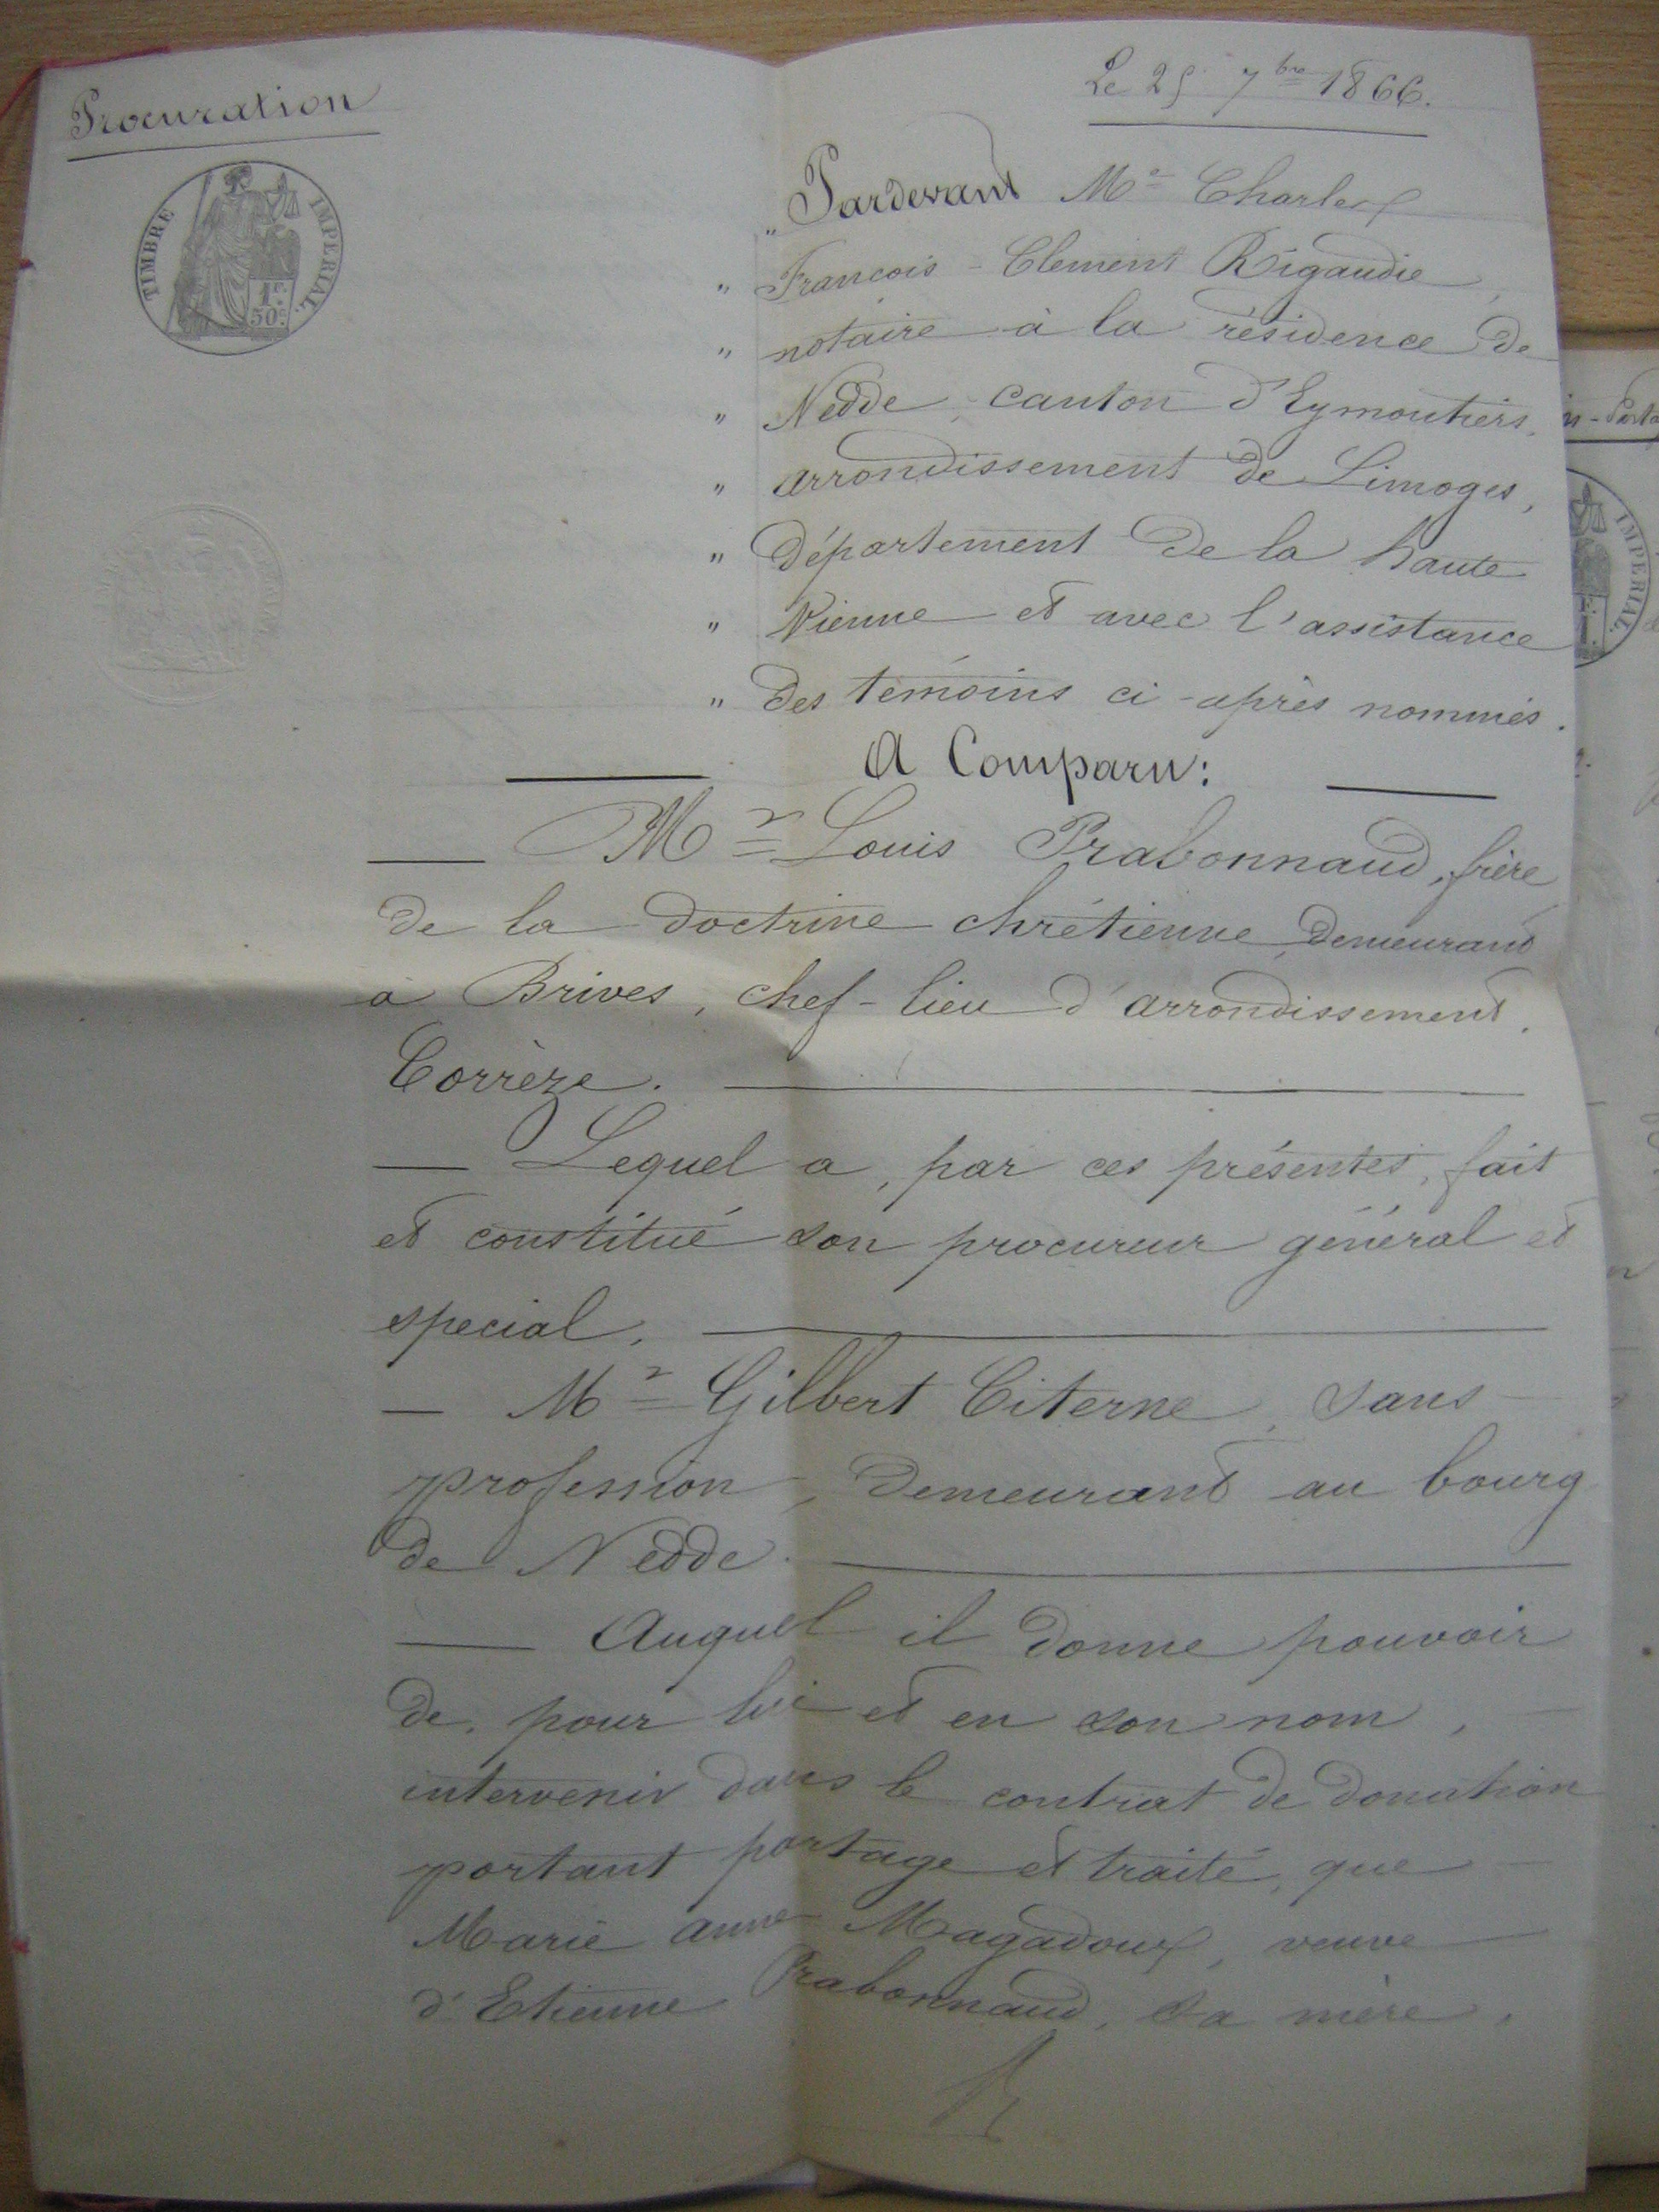 Procuration
Le 25 7bre 1866.
TIMBRE IMPERIAL.
1F.
50c.
"Pardevant Me Charles
" François-Clément Rigaudie,
" notaire à la résidence de
" Nedde, canton d'Eymoutiers,
" arrondissement de Limoges,
" Département de la Haute
" Vienne et avec l'assistance
" des témoins ci-après nommés.
A Comparu:
Mr Louis Prabonnaud, frère
de la doctrine chrétienne, demeurant
à Brives, chef-lieu d'arrondissement.
Corrèze.
Lequel a, par ces présentes, fait
et constitué son procureur général et
spécial,
Mr Gilbert Citerne, sans
profession, demeurant au bourg
de Nedde.
Auquel il donne pouvoir
de, pour lui et en son nom,
intervenir dans le contrat de donation
portant partage et traité, que
Marie anne Magadoux, veuve
d'Etienne Prabonnaud, sa mère,
IMPERIAL.